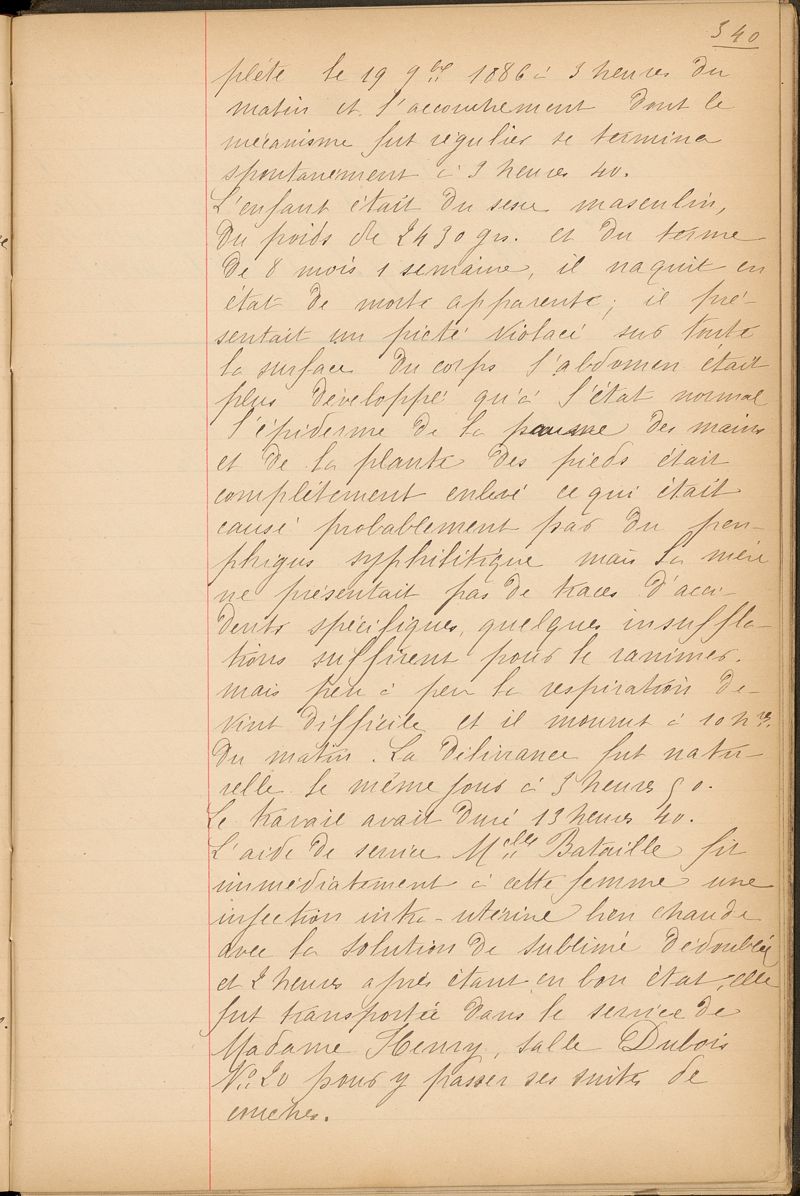 340
plète le 19 9bre 1886 à 3 heures du
matin et l'accouchement dont le
mécanisme fut régulier se termina
spontanément à 3 heures 40.
L'enfant était du sexe masculin,
du poids de 2430 grs. et du terme
de 8 mois 1 semaine, il naquit en
état de morte apparente; il pré-
sentait un picté violacé sur toute
la surface du corps l'abdomen était
plus développé qu'à l'état normal
l'épiderme de la paume des mains
et de la plante des pieds était
complètement enlevé ce qui était
causé probablement par du pem-
phigus syphilitique mais la mère
ne présentait pas de traces d'acci-
dents spécifiques, quelques insuffla-
tions suffirent pour le ranimer.
mais peu à peu la respiration de-
vint difficile et il mourut à 10 hres.
du matin. La délivrance fut natu-
relle le même jour à 3 heures 50.
Le travail avait duré 13 heures 40.
L'aide de service Melle Bataille fit
immédiatement à cette femme une
injection intra-utérine bien chaude
avec la solution de sublimé dédoublée
et 2 heures après étant en bon état, elle
fut transportée dans le service de
Madame Henry, salle Dubois
No 20 pour y passer ses suites de
couches.